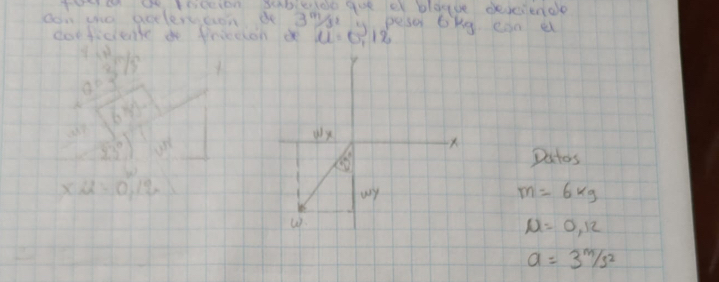 fuerza de fricción sabiendo que el bloque desciende
con una aceleración de 3 m/s² y pesa 6 kg con el
coeficiente de fricción de μ=0,12
y
x
6 kg
wx
wy
w
x μ=0,12
y
wx
x
wy
w
Datos
m= 6 kg
μ= 0,12
a= 3 m/s²